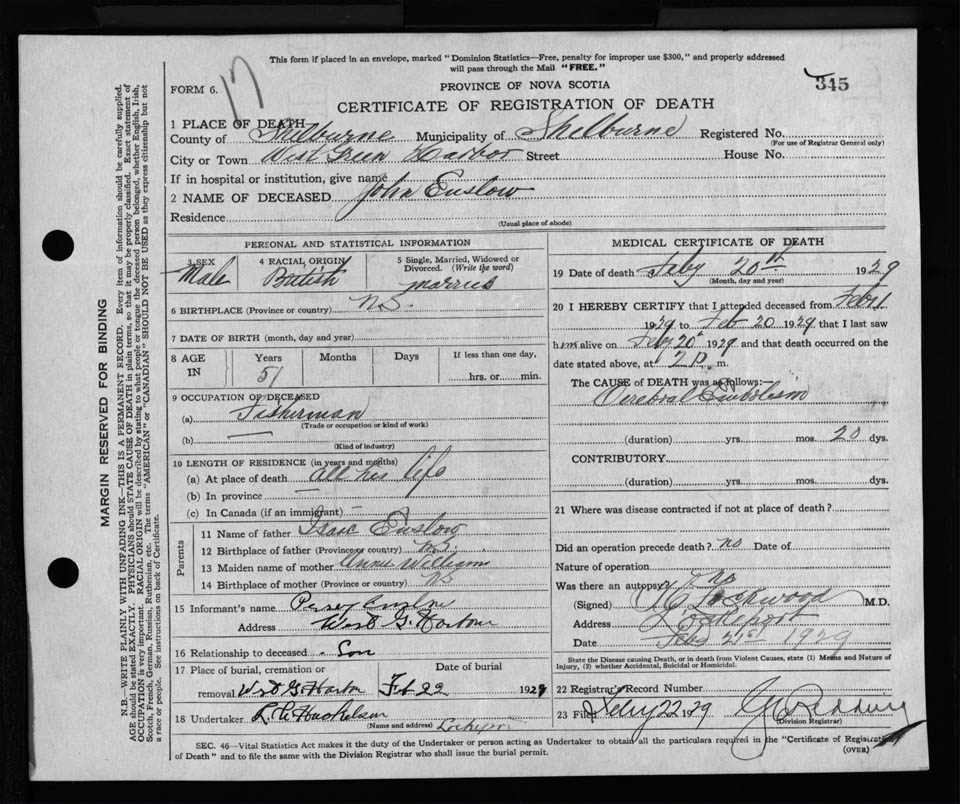 This form if placed in an envelope, marked "Dominion Statistics—Free, penalty for improper use $300," and properly addressed
will pass through the Mail "FREE."
17
345
FORM 6.
PROVINCE OF NOVA SCOTIA
CERTIFICATE OF REGISTRATION OF DEATH
1 PLACE OF DEATH
County of Shelburne Municipality of Shelburne Registered No.
(For use of Registrar General only)
City or Town West Green Harbor Street House No.
If in hospital or institution, give name
2 NAME OF DECEASED John Enslow
Residence
(Usual place of abode)
PERSONAL AND STATISTICAL INFORMATION
3 SEX 4 RACIAL ORIGIN 5 Single, Married, Widowed or
Divorced. (Write the word)
Male British married
6 BIRTHPLACE (Province or country) N.S.
7 DATE OF BIRTH (month, day and year)
8 AGE IN Years Months Days If less than one day,
51 hrs. or min.
9 OCCUPATION OF DECEASED
(a) Fisherman
(Trade or occupation or kind of work)
(b) —
(Kind of industry)
10 LENGTH OF RESIDENCE (in years and months)
(a) At place of death all his life
(b) In province —
(c) In Canada (if an immigrant) —
Parents
11 Name of father Isaac Enslow
12 Birthplace of father (Province or country) N.S.
13 Maiden name of mother Annie Williams
14 Birthplace of mother (Province or country) NS
15 Informant's name Percy Enslow
Address West G. Harbour
16 Relationship to deceased Son
17 Place of burial, cremation or Date of burial
removal West G. Harbor Feb 22 1929
18 Undertaker
(Name and address) Lockeport
MEDICAL CERTIFICATE OF DEATH
19 Date of death Feby 20th 1929
(Month, day and year)
20 I HEREBY CERTIFY that I attended deceased from Feby 1
1929 to Feb 20 1929 that I last saw
him alive on Feby 20th 1929 and that death occurred on the
date stated above, at 2 p. m.
The CAUSE of DEATH was as follows:—
Cerebral Embolism
(duration) yrs. mos. 20 dys.
CONTRIBUTORY
(duration) yrs. mos. dys.
21 Where was disease contracted if not at place of death?
Did an operation precede death? no Date of
Nature of operation
Was there an autopsy? no
(Signed) Lockwood M.D.
Address Lockeport
Date Feby 21st 1929
State the Disease causing Death, or in death from Violent Causes, state (1) Means and Nature of
Injury, (2) whether Accidental, Suicidal or Homicidal.
22 Registrar's Record Number
23 Filed Feby 22 1929
(Division Registrar)
SEC. 46—Vital Statistics Act makes it the duty of the Undertaker or person acting as Undertaker to obtain all the particulars required in the "Certificate of Registration
of Death" and to file the same with the Division Registrar who shall issue the burial permit.
(OVER)
MARGIN RESERVED FOR BINDING
N.B.—WRITE PLAINLY WITH UNFADING INK—THIS IS A PERMANENT RECORD. Every item of information should be carefully supplied.
AGE should be stated EXACTLY. PHYSICIANS should STATE CAUSE OF DEATH in plain terms, so that it may be properly classified. Exact statement of
OCCUPATION is very important. RACIAL ORIGIN will be described by stating to what people or tongue the deceased person belonged, whether English, Irish,
Scotch, French, German, Russian, Ruthenian, etc. The terms "AMERICAN" or "CANADIAN" SHOULD NOT BE USED as they express citizenship but not
a race or people. See instructions on back of Certificate.